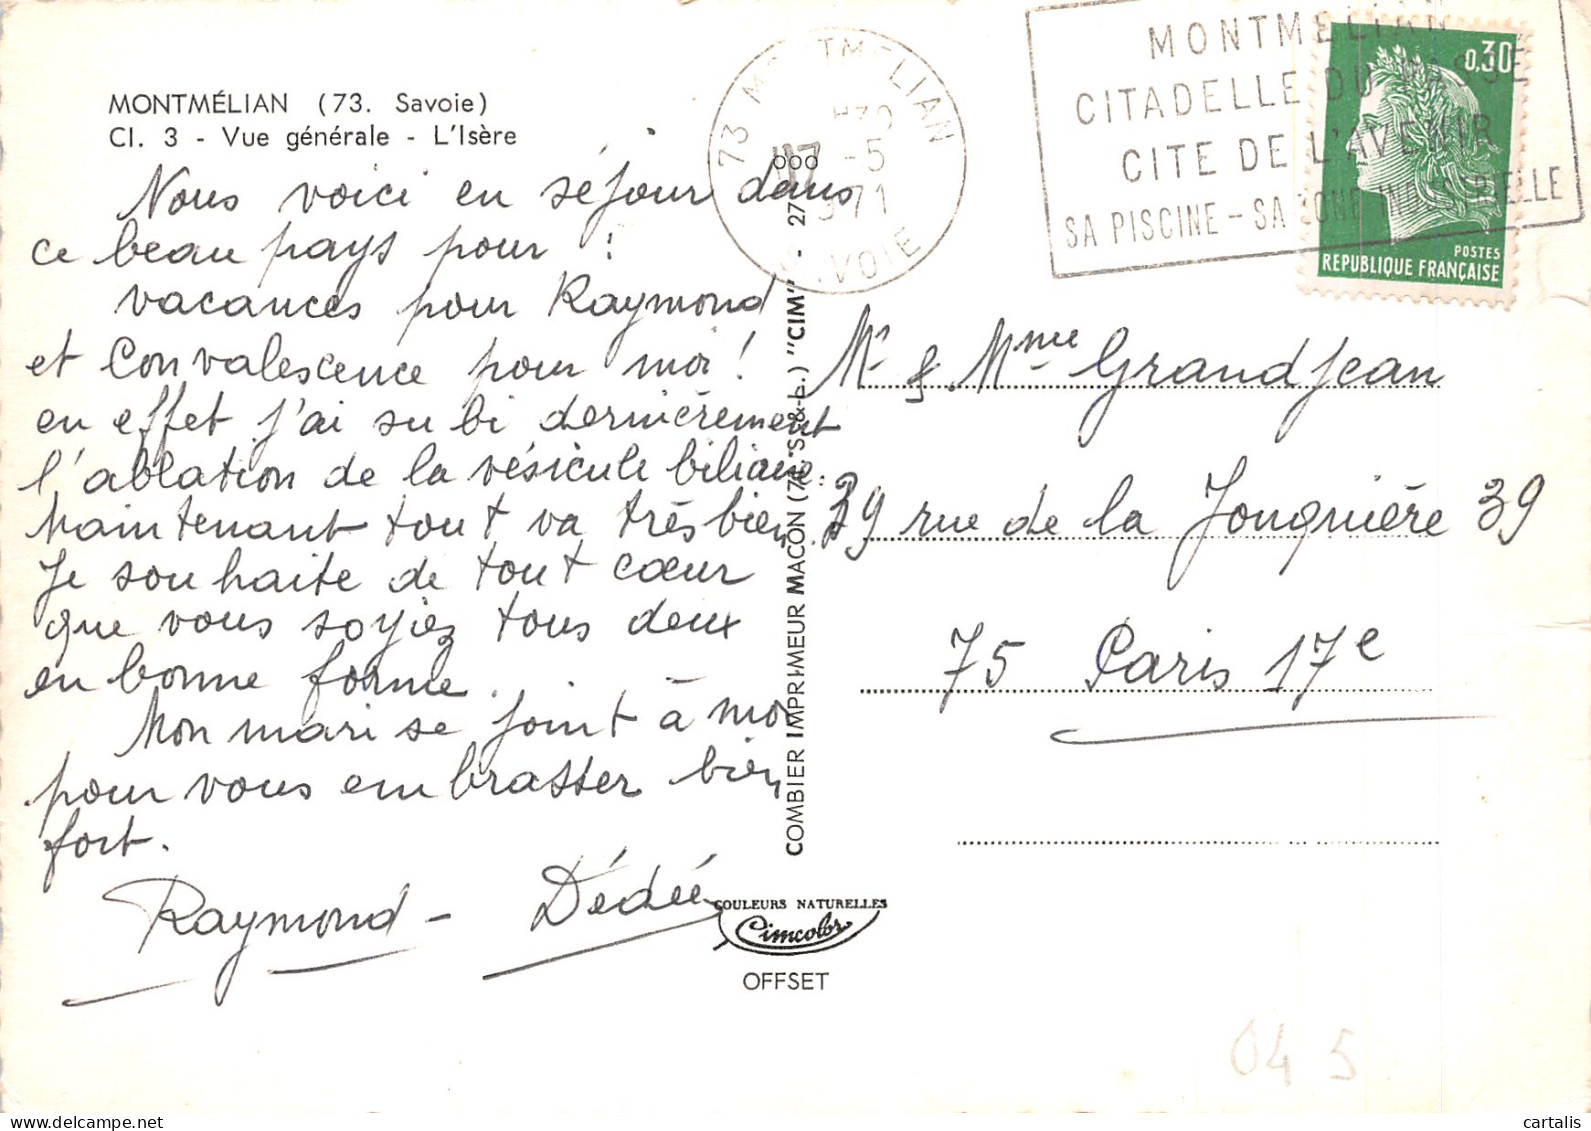 MONTMÉLIAN (73. Savoie)
Cl. 3 - Vue générale - L'Isère
Nous voici en séjour dans
ce beau pays pour :
vacances pour Raymond
et Convalescence pour moi !
en effet j'ai subi dernièrement
l'ablation de la vésicule biliaire.
Maintenant tout va très bien.
Je souhaite de tout cœur
que vous soyiez tous deux
en bonne forme.
Mon mari se joint à moi
pour vous embrasser bien
fort.
Raymond - Dédée
COMBIER IMPRIMEUR MACON (71. S.-&-L.) "CIM" - 27
COULEURS NATURELLES
Cimcolor
OFFSET
73 MONTMELIAN
-5
1971
SAVOIE
MONTMELIAN
CITADELLE DU PASSE
CITE DE L'AVENIR
SA PISCINE - SA ZONE INDUSTRIELLE
0,30
POSTES
REPUBLIQUE FRANÇAISE
Mr & Mme Grandjean
39 rue de la Jonquière 39
75 Paris 17e
04 5
delcampe.net
cartalis